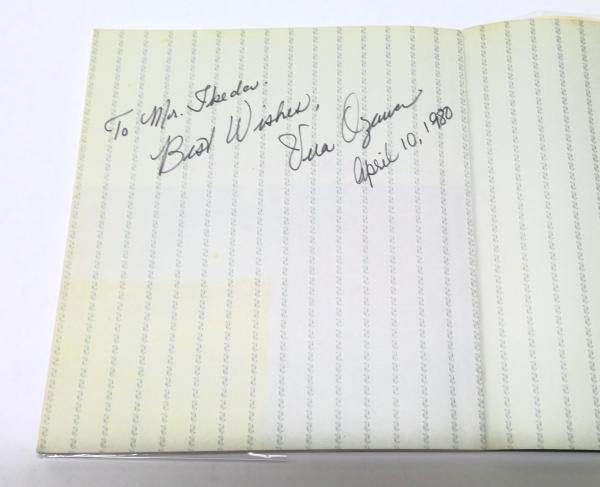 To Mr. Ikeda.
Best Wishes,
Vera Ozawa
April 10, 1980